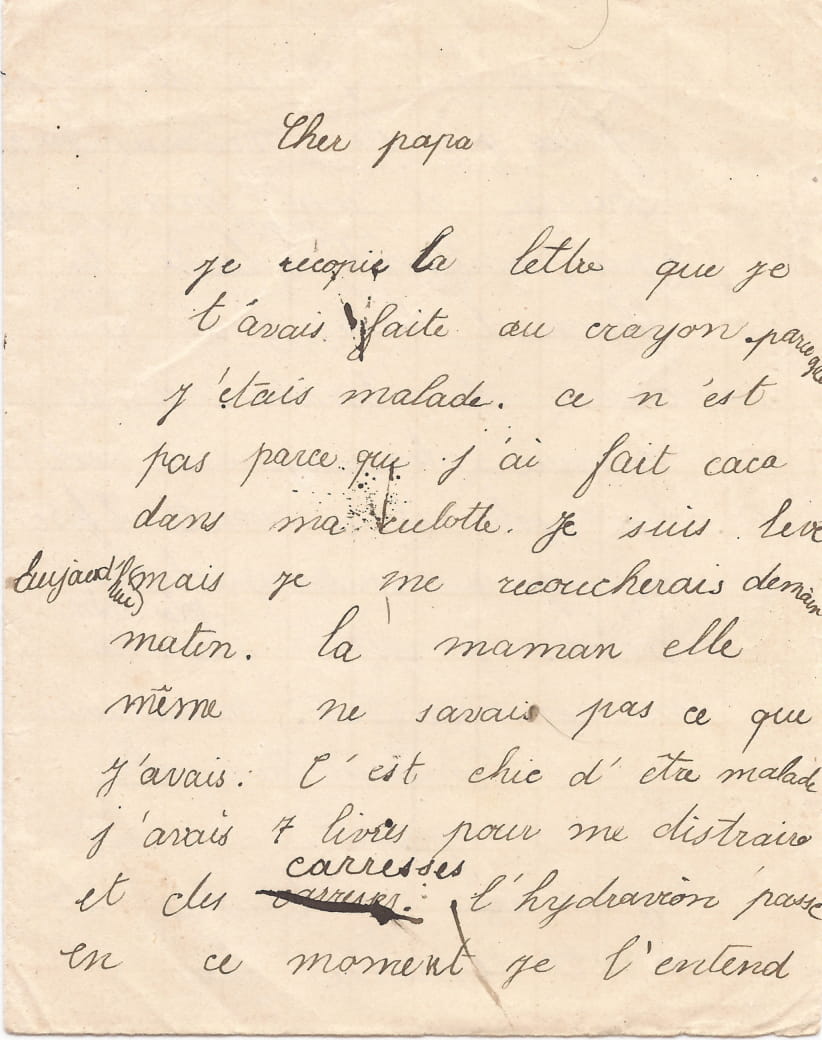 Cher papa
je recopie la lettre que je
t'avais faite au crayon parce que
j'étais malade. ce n'est
pas parce que j'ai fait caca
dans ma culotte. Je suis levé
aujourd'hui mais je me recoucherais demain
matin. la maman elle
même ne savais pas ce que
j'avais. C'est chic d'être malade
j'avais 7 livres pour me distraire
carresses
et des carreses. l'hydravion passe
en ce moment je l'entend